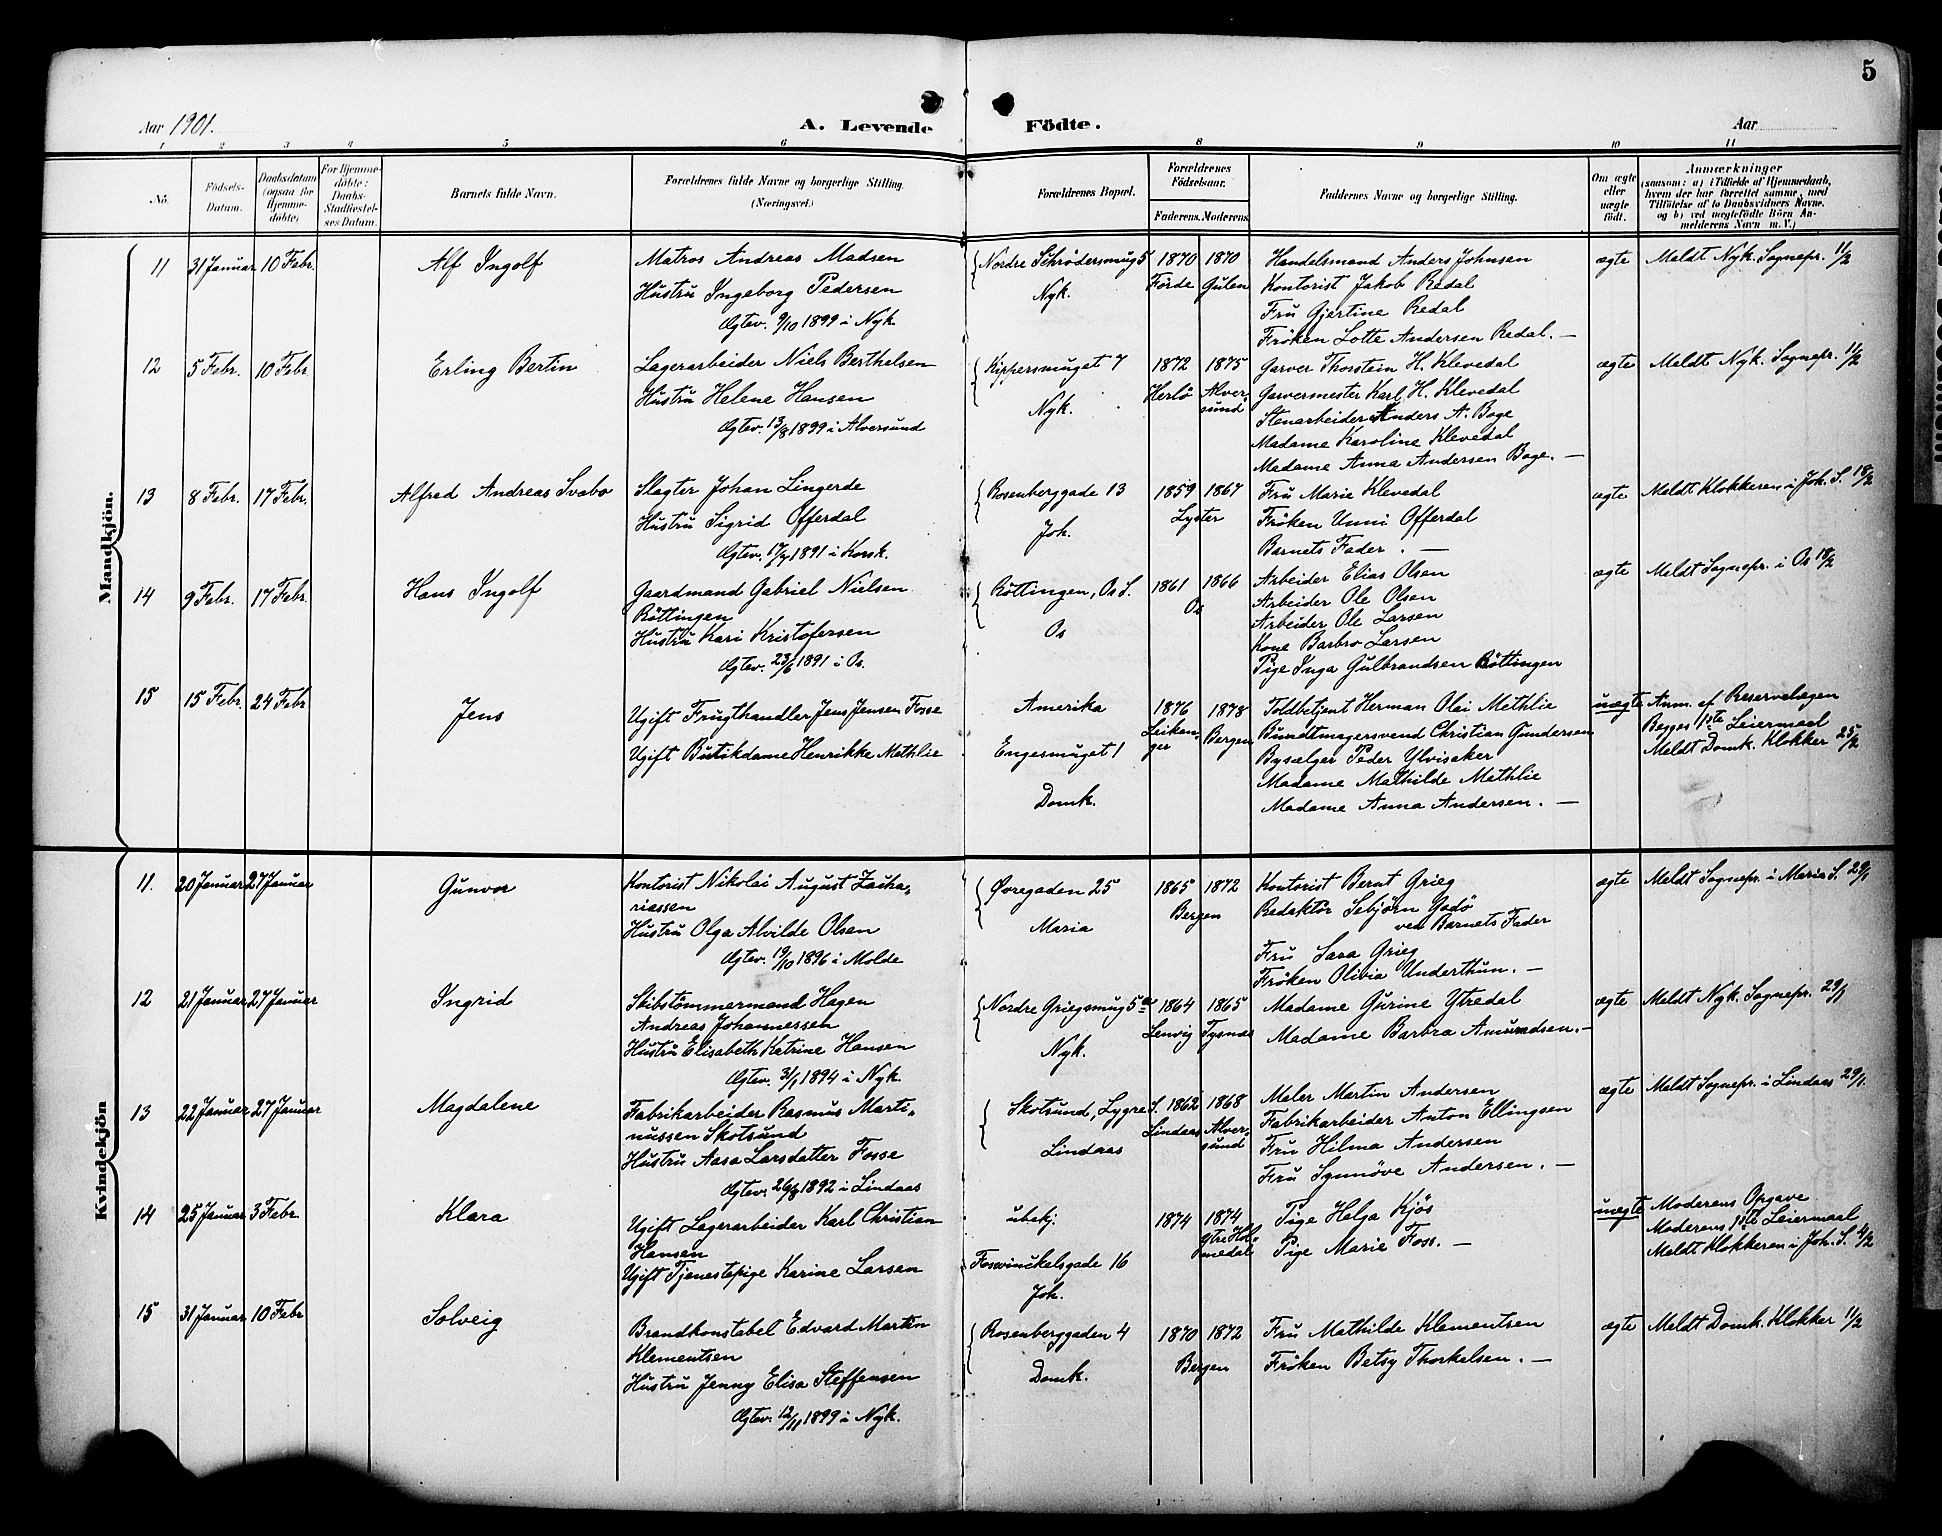 5
Aar 1901.
A. Levende Födte.
Aar
1 2 3 4 5 6 8 9 10 11
No.
Födsels-Datum.
Daabsdatum (ogsaa for Hjemme-döbte)
For Hjemme-döbte: Daabs-Stadfæstel-ses Datum.
Barnets fulde Navn.
Forældrenes fulde Navne og borgerlige Stilling. (Næringsvei.)
Forældrenes Bopæl.
Forældrenes Födselsaar.
Faderens. Moderens.
Faddernes Navne og borgerlige Stilling.
Om ægte eller uægte födt.
Anmærkninger
(saasom: a) i Tilfælde af Hjemmedaab, hvem der har forrettet samme, med Tilföielse af to Daabsvidners Navne, og b) ved uægtefödte Börn An-melderens Navn m. V.)
Mandkjön.
11 31 Januar 10 Febr. Alf Ingolf
Matros Andreas Madsen
Hustru Ingeborg Pedersen
Ægtev. 9/10 1899 i Nyk.
Nordre Schrödersmug 5
Nyk.
1870 1870
Förde Gulen
Handelsmand Anders Johnsen
Kontorist Jakob Redal
Fru Gjertine Redal
Fröken Lotte Andersen Redal. —
ægte Meldt Nyk. Sognepr. 11/2
12 5 Febr. 10 Febr. Erling Bertin
Lagerarbeider Niels Berthelsen
Hustru Helene Hansen
Ægtev. 13/8 1899 i Alversund
Kippersmuget 7
Nyk.
1872 1875
Herlö Alver-
sund
Garver Thorstein H. Klevedal
Garvermester Karl H. Klevedal
Stenarbeider Anders A. Boge
Madame Karoline Klevedal
Madame Anna Andersen Boge. —
ægte Meldt Nyk. Sognepr. 11/2
13 8 Febr. 17 Febr. Alfred Andreas Svabo
Slagter Johan Lingerde
Hustru Sigrid Offerdal
Ægtev. 1891 i Korsk.
Rosenberggade 13
Joh.
1859 1867
Lyster
Fru Marie Klevedal
Fröken Unni Offerdal
Barnets Fader. —
ægte Meldt Klokkeren i Joh. S. 18/2
14 9 Febr. 17 Febr. Hans Ingolf
Gaardmand Gabriel Nielsen
Röttingen
Hustru Kari Kristofersen
Ægtev. 23/6 1891 i Os.
Röttingen, Os S.
Os
1861 1866
Os
Arbeider Elias Olsen
Arbeider Ole Olsen
Arbeider Ole Larsen
Kone Barbro Larsen
Pige Inga Gulbrandsen Röttingen
ægte Meldt Sognepr. i Os 18/2
15 15 Febr. 24 Febr Jens
Ugift Frugthandler Jens Jensen Fosse
Ugift Butikdame Henrikke Methlie
Amerika
Engesmuget 1
Domk.
1876 1878
Leikan-
ger Bergen
Toldbetjent Herman Olai Methlie
Bundtmagersvend Christian Gundersen
Bysælger Peder Ylvisaker
Madame Mathilde Methlie
Madame Anna Andersen. —
uægte Anm. af Reservelægen
Begges 1ste Leiermaal
Meldt Domk. Klokker 25/2
Kvindekjön
11. 20 Januar 27 Januar Gunvor
Kontorist Nikolai August Zacha-
riassen
Hustru Olga Alvilde Olsen
Ægtev. 19/10 1896 i Molde
Øvregaden 25
Maria
1865 1872
Bergen
Kontorist Bernt Grieg
Redaktör Sebjörn Godö
ved Barnets Fader
Fru Sara Grieg
Fröken Olivia Underthun. —
ægte Meldt Sognepr. i Maria S. 29/1
12 21 Januar 27 Januar Ingrid
Skibstömmermand Hagen
Andreas Johannessen
Hustru Elisabeth Katrine Hansen
Ægtev. 31/1 1894 i Nyk.
Nordre Griegsmug 5a
Nyk.
1864 1865
Lenvig Tysnæs
Madame Gurine Ytredal
Madame Barbra Amundsen. —
ægte Meldt Nyk. Sognepr. 29/1
13 22 Januar 27 Januar Magdalene
Fabrikarbeider Rasmus Marti-
nussen Skotsund
Hustru Aasa Larsdatter Fosse
Ægtev. 1892 i Lindaas
Skotsund, Lygre S.
Lindaas
1862 1868
Lindaas Alver-
sund
Maler Martin Andersen
Fabrikarbeider Anton Ellingsen
Fru Hilma Andersen
Fru Synnöve Andersen. —
ægte Meldt Sognepr. i Lindaas 29/1.
14 25 Januar 3 Febr. Klara
Ugift Lagerarbeider Karl Christian
Hansen
Ugift Tjenestepige Karine Larsen
ubekj.
Foswinckelsgade 16
Joh.
1874 1874
Ytre Hol-
medal
Pige Helga Kjös
Pige Marie Foss. —
uægte Moderens Opgave
Moderens 1ste Leiermaal
Meldt Klokkeren i Joh. S. 4/2
15 31 Januar 10 Febr Solveig
Brandkonstabel Edvard Martin
Klementsen
Hustru Jenny Elisa Steffensen
Ægtev. 12/11 1899 i Nyk.
Rosenberggaden 4
Domk.
1870 1872
Bergen
Fru Mathilde Klementsen
Fröken Betsy Thorkelsen. —
ægte Meldt Domk. Klokker 11/2